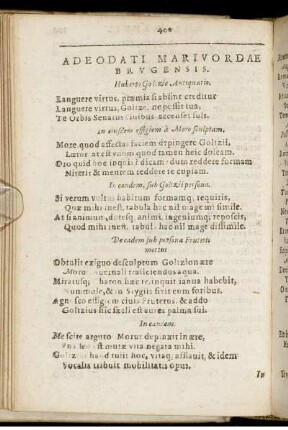 400
ADEODATI MARIVORDAE
BRVGENSIS.
Huberti Goltzio Antiquario.
Languere virtus, præmia si absint creditur
Languere virtus, Goltzi, ne possit tua,
Te Orbis Senatus civibus accenset suis.
In eiusdem effigiem à Moro sculptam.
More, quod affectas faciem depingere Goltzii,
Lætor at est vanum quod tamen heic doleam.
Dio quid hoc inquis? dicam: dum reddere formam
Niteris & mentem reddere te copiam.
In eandem, sub Goltzii persona.
Si verum vultus habitum formamq; requiris,
Quæ mihi inest, tabula hac nil magè dissimile.
At si animum, dotesq; animi, ingeniumq; reposcis,
Quod mihi inest, tabula hac nil mage dissimile.
De eadem sub persona Fruterii
mortui
Obtulit exiguo desculptum Goltzion ære
Morus mihi
Miratusq; Charon hæc inquit tantà habebit,
&
Agnosco effigiem civis Fruteros, & addo
Goltzius hic sculi est aures palma sui.
In eandem.
Me scire arguto Morus depinxit in ære,
est mutæ vita negata mihi.
Goltzius haud tulit hoc, vitaq; afflavit, & idem
Vocalis tribuit mobilitatis opus.